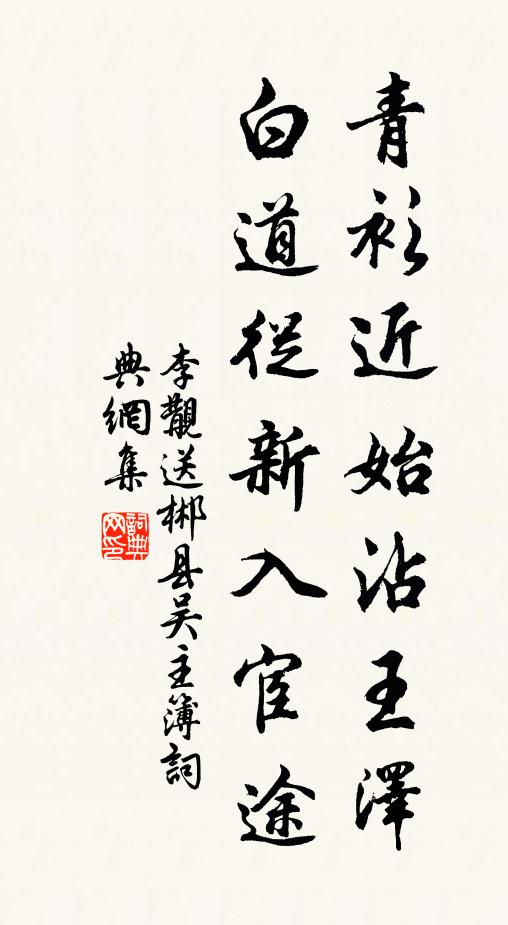 青衫近始沾王澤
白道從新入宦途
李觀送郴县吴主簿詞
典網集
詞典网印